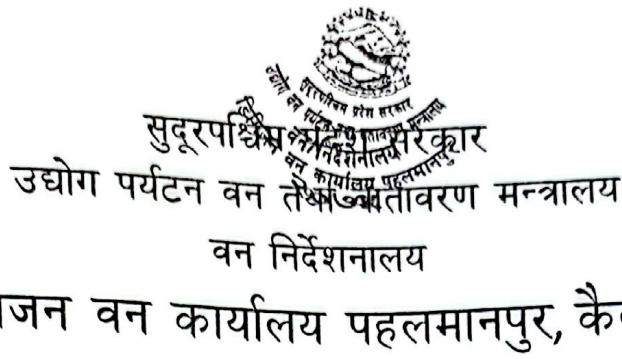 सुदूरपश्चिम प्रदेश सरकार
उद्योग पर्यटन वन तथा वातावरण मन्त्रालय
वन निर्देशनालय
जन वन कार्यालय पहलमानपुर, कै